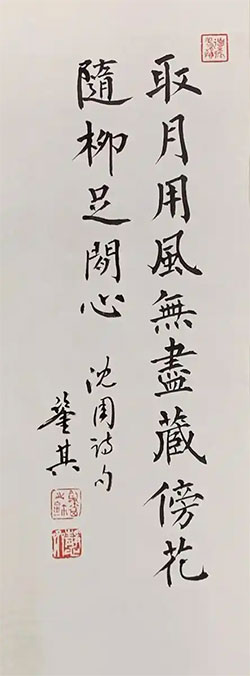 取月用風無盡藏傍花
隨柳足閒心
沈周詩句
肇其